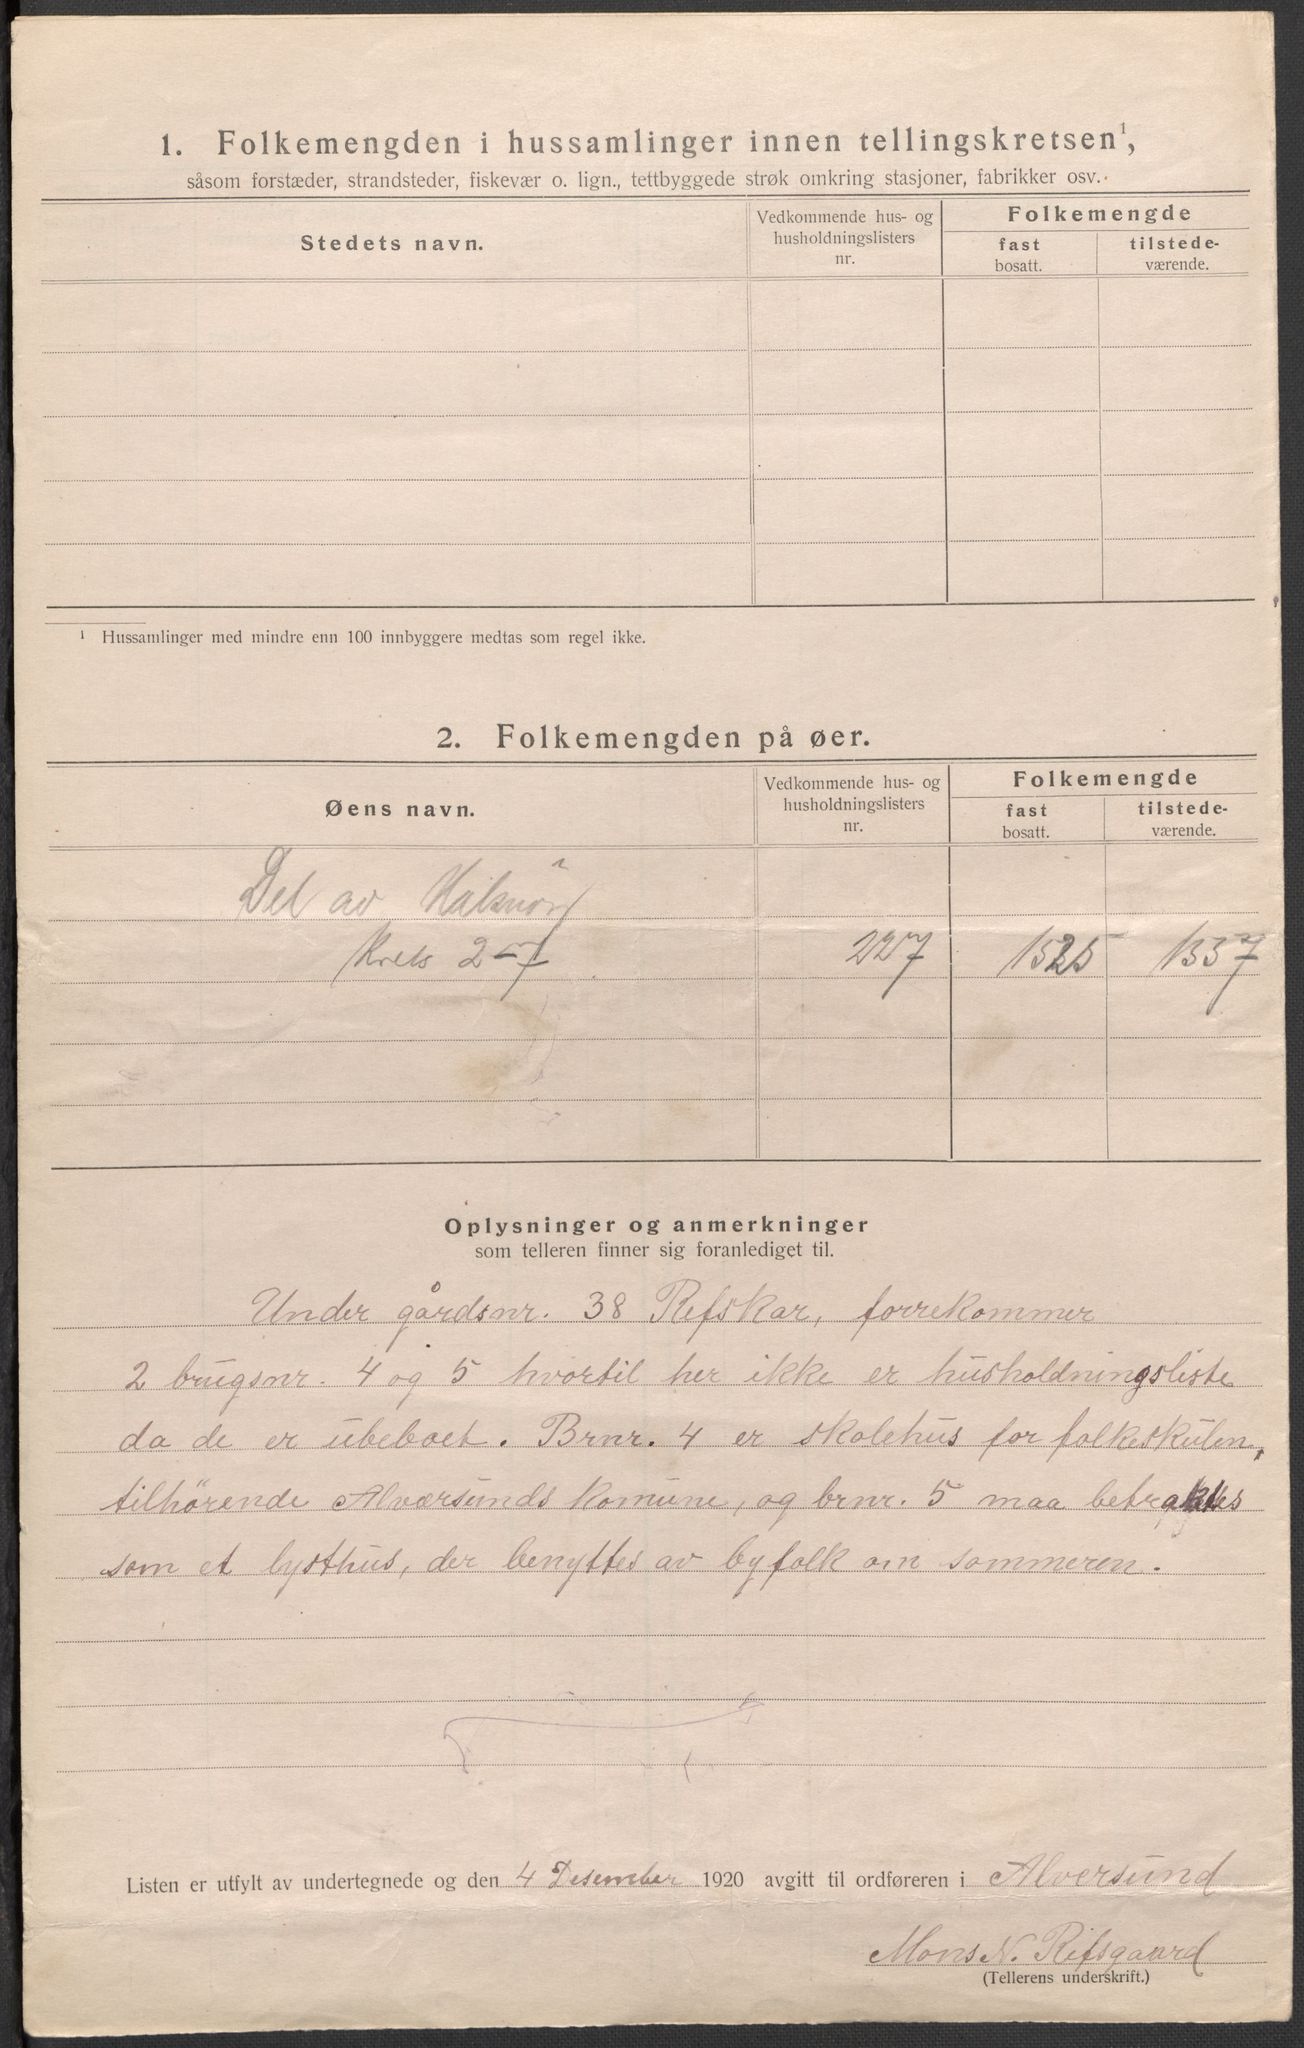 1. Folkemengden i hussamlinger innen tellingskretsen¹,
såsom forstæder, strandsteder, fiskevær o. lign., tettbyggede strøk omkring stasjoner, fabrikker osv.
Stedets navn.
Vedkommende hus- og
husholdningslisters
nr.
Folkemengde
fast
bosatt.
tilstede-
værende.
¹ Hussamlinger med mindre enn 100 innbyggere medtas som regel ikke.
2. Folkemengden på øer.
Øens navn.
Vedkommende hus- og
husholdningslisters
nr.
Folkemengde
fast
bosatt.
tilstede-
værende.
Del av
Krets 2-7 227 1525 1337
Oplysninger og anmerkninger
som telleren finner sig foranlediget til.
Under gårdsnr. 38 Refskar, forrekommer
2 brugsnr. 4 og 5 hvortil her ikke er husholdningsliste
da de er ubeboet. Brnr. 4 er skolehus for folkeskulen,
tilhørende Alværsunds komune, og brnr. 5 maa betraktes
som et lysthus, der benyttes av byfolk om sommeren.
Listen er utfylt av undertegnede og den 4 Desember 1920 avgitt til ordføreren i Alversund
Mons N. Refsgaard
(Tellerens underskrift.)